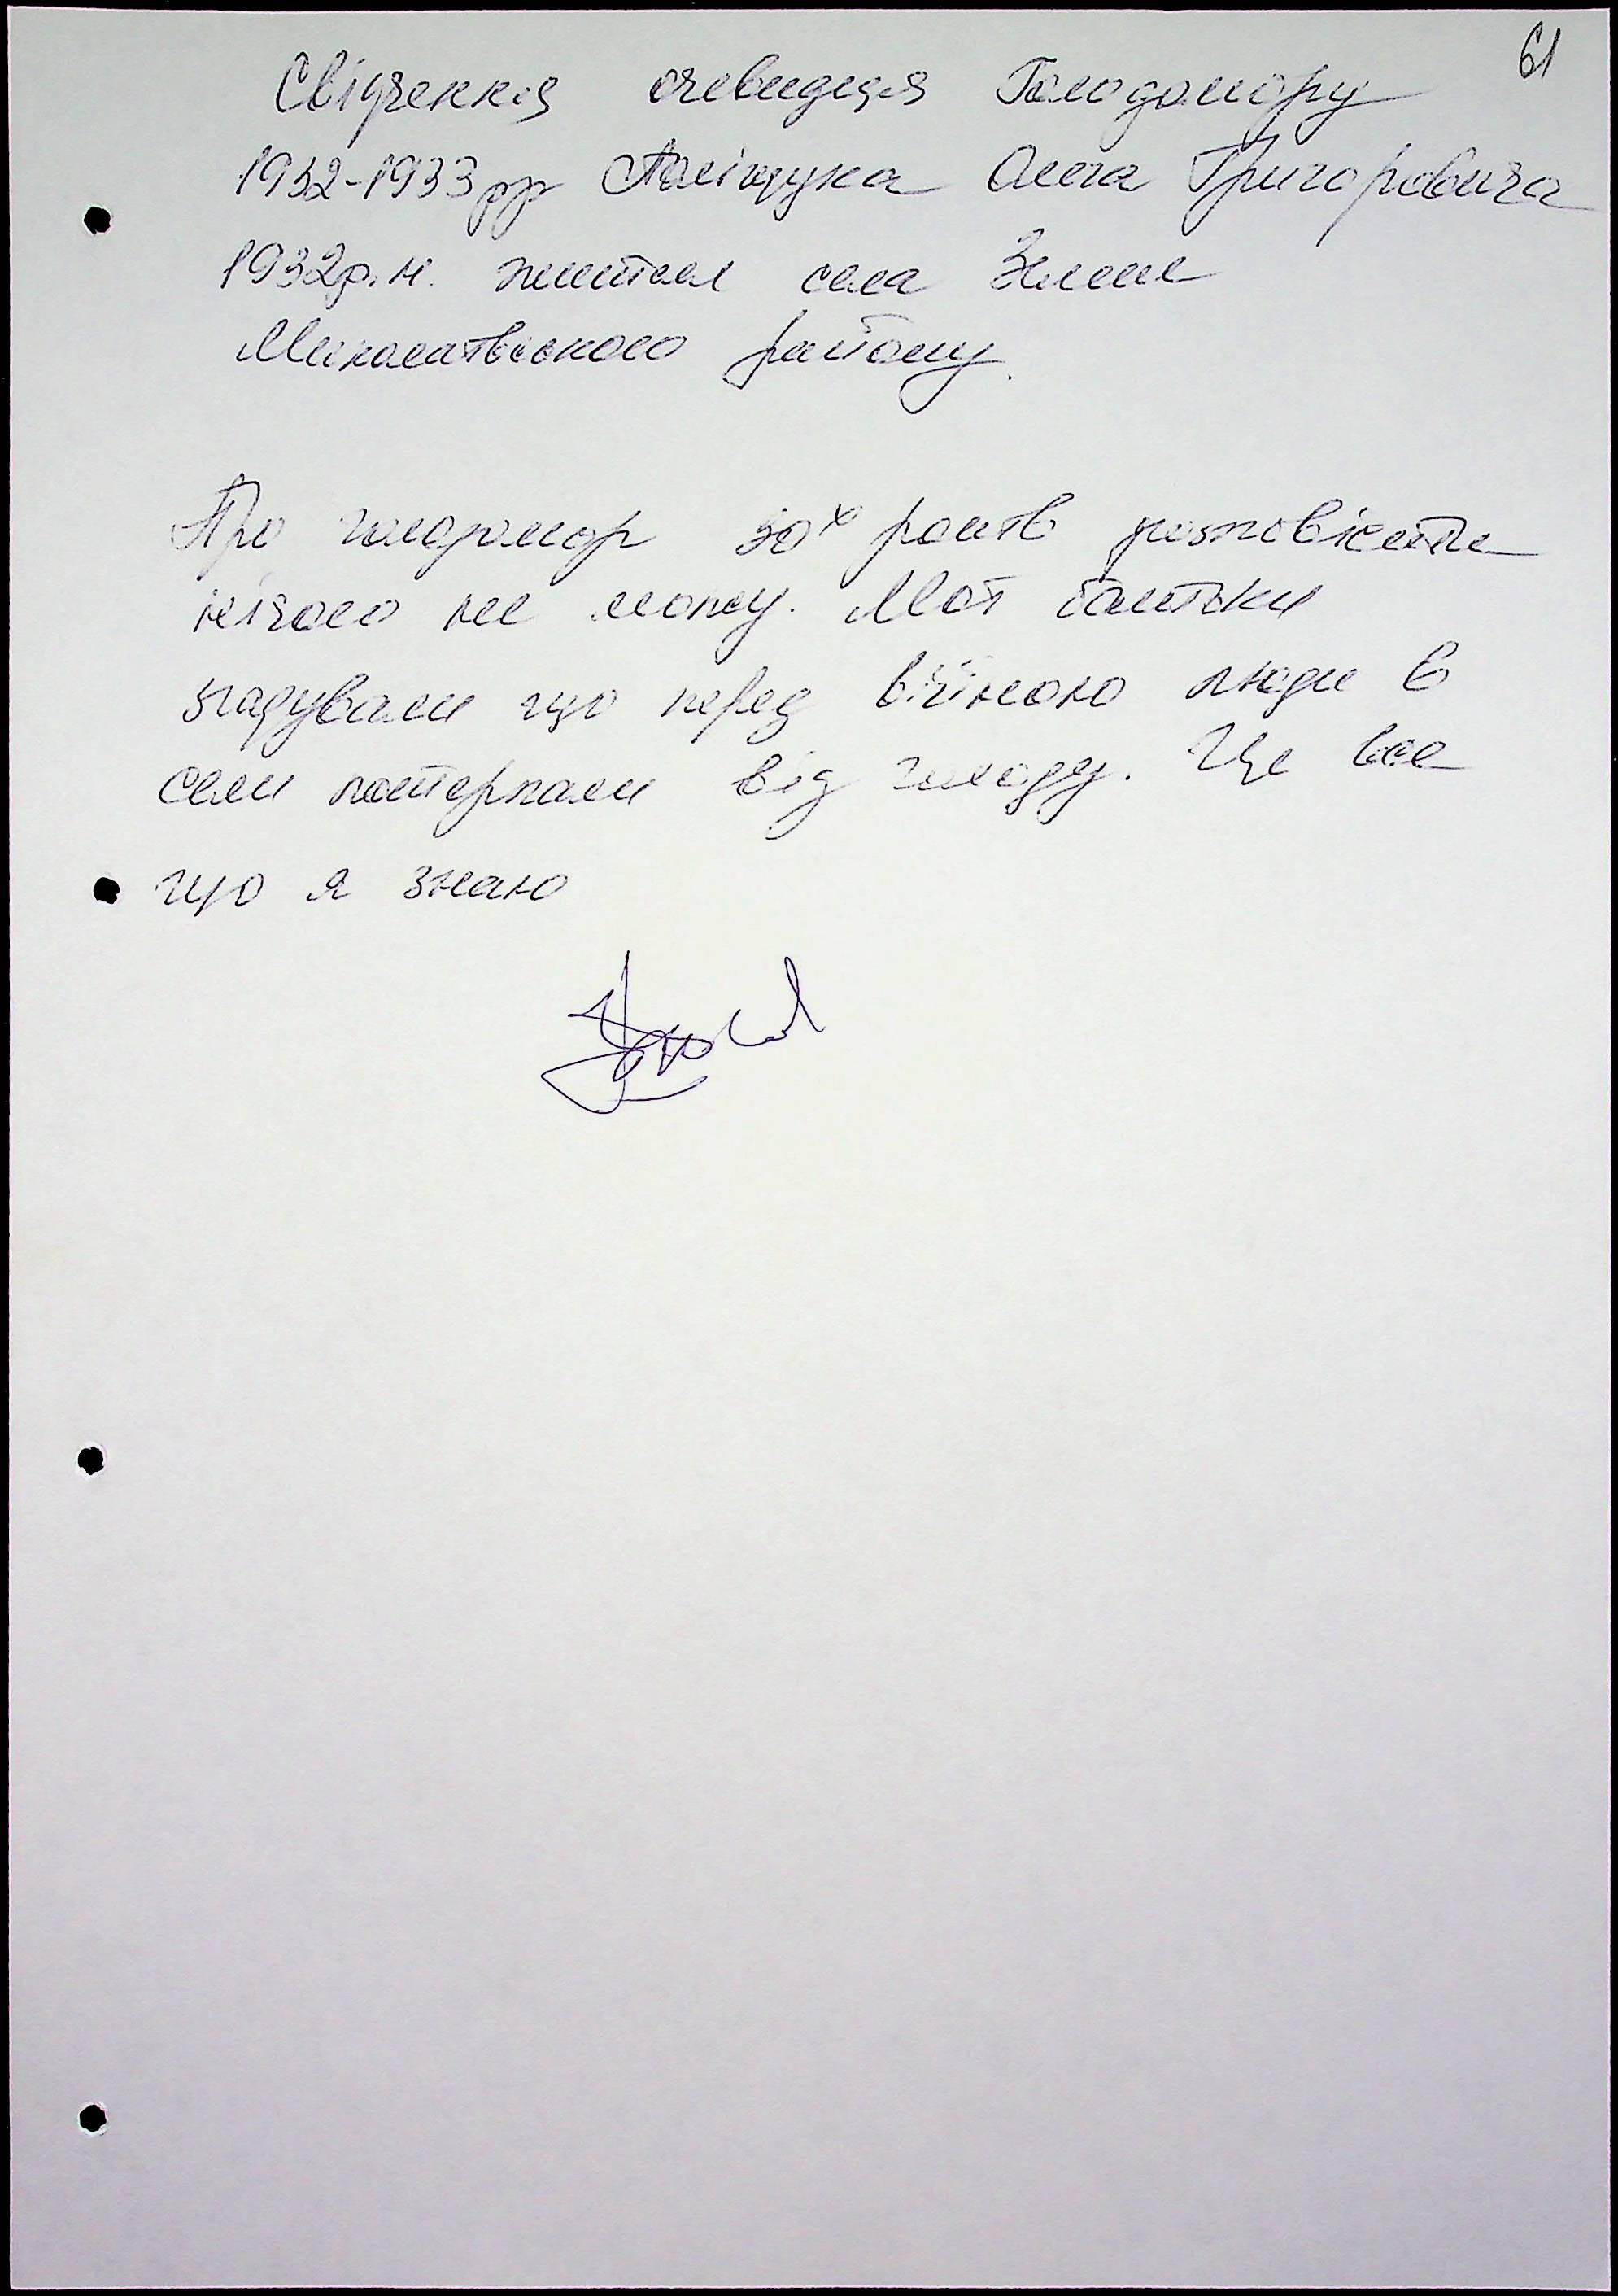 61
Свідчення очевидця Голодомору
1932-1933 рр Поліщука Олега Григоровича
1932р.н. жителя села
Миколаївського району.
Про голодомор 30х років розповісти
нічого не можу. Мої батьки
згадували що перед війною люди в
селі потерпали від голоду. Це все
що я знаю